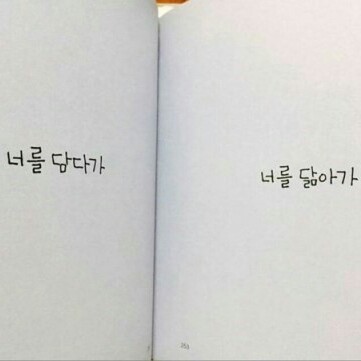 너를 담다가
너를 닮아가